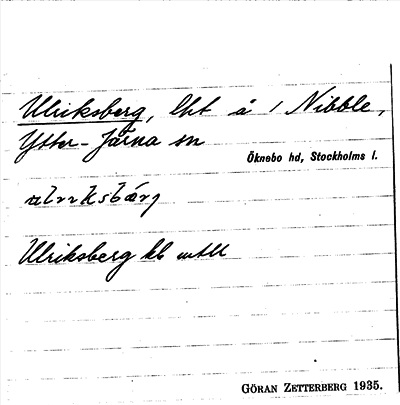 Ulriksberg, lht å 1 Nibble,
Ytter-Järna sn
Öknebo hd, Stockholms l.
Ulriksberg kb
GÖRAN ZETTERBERG 1935.